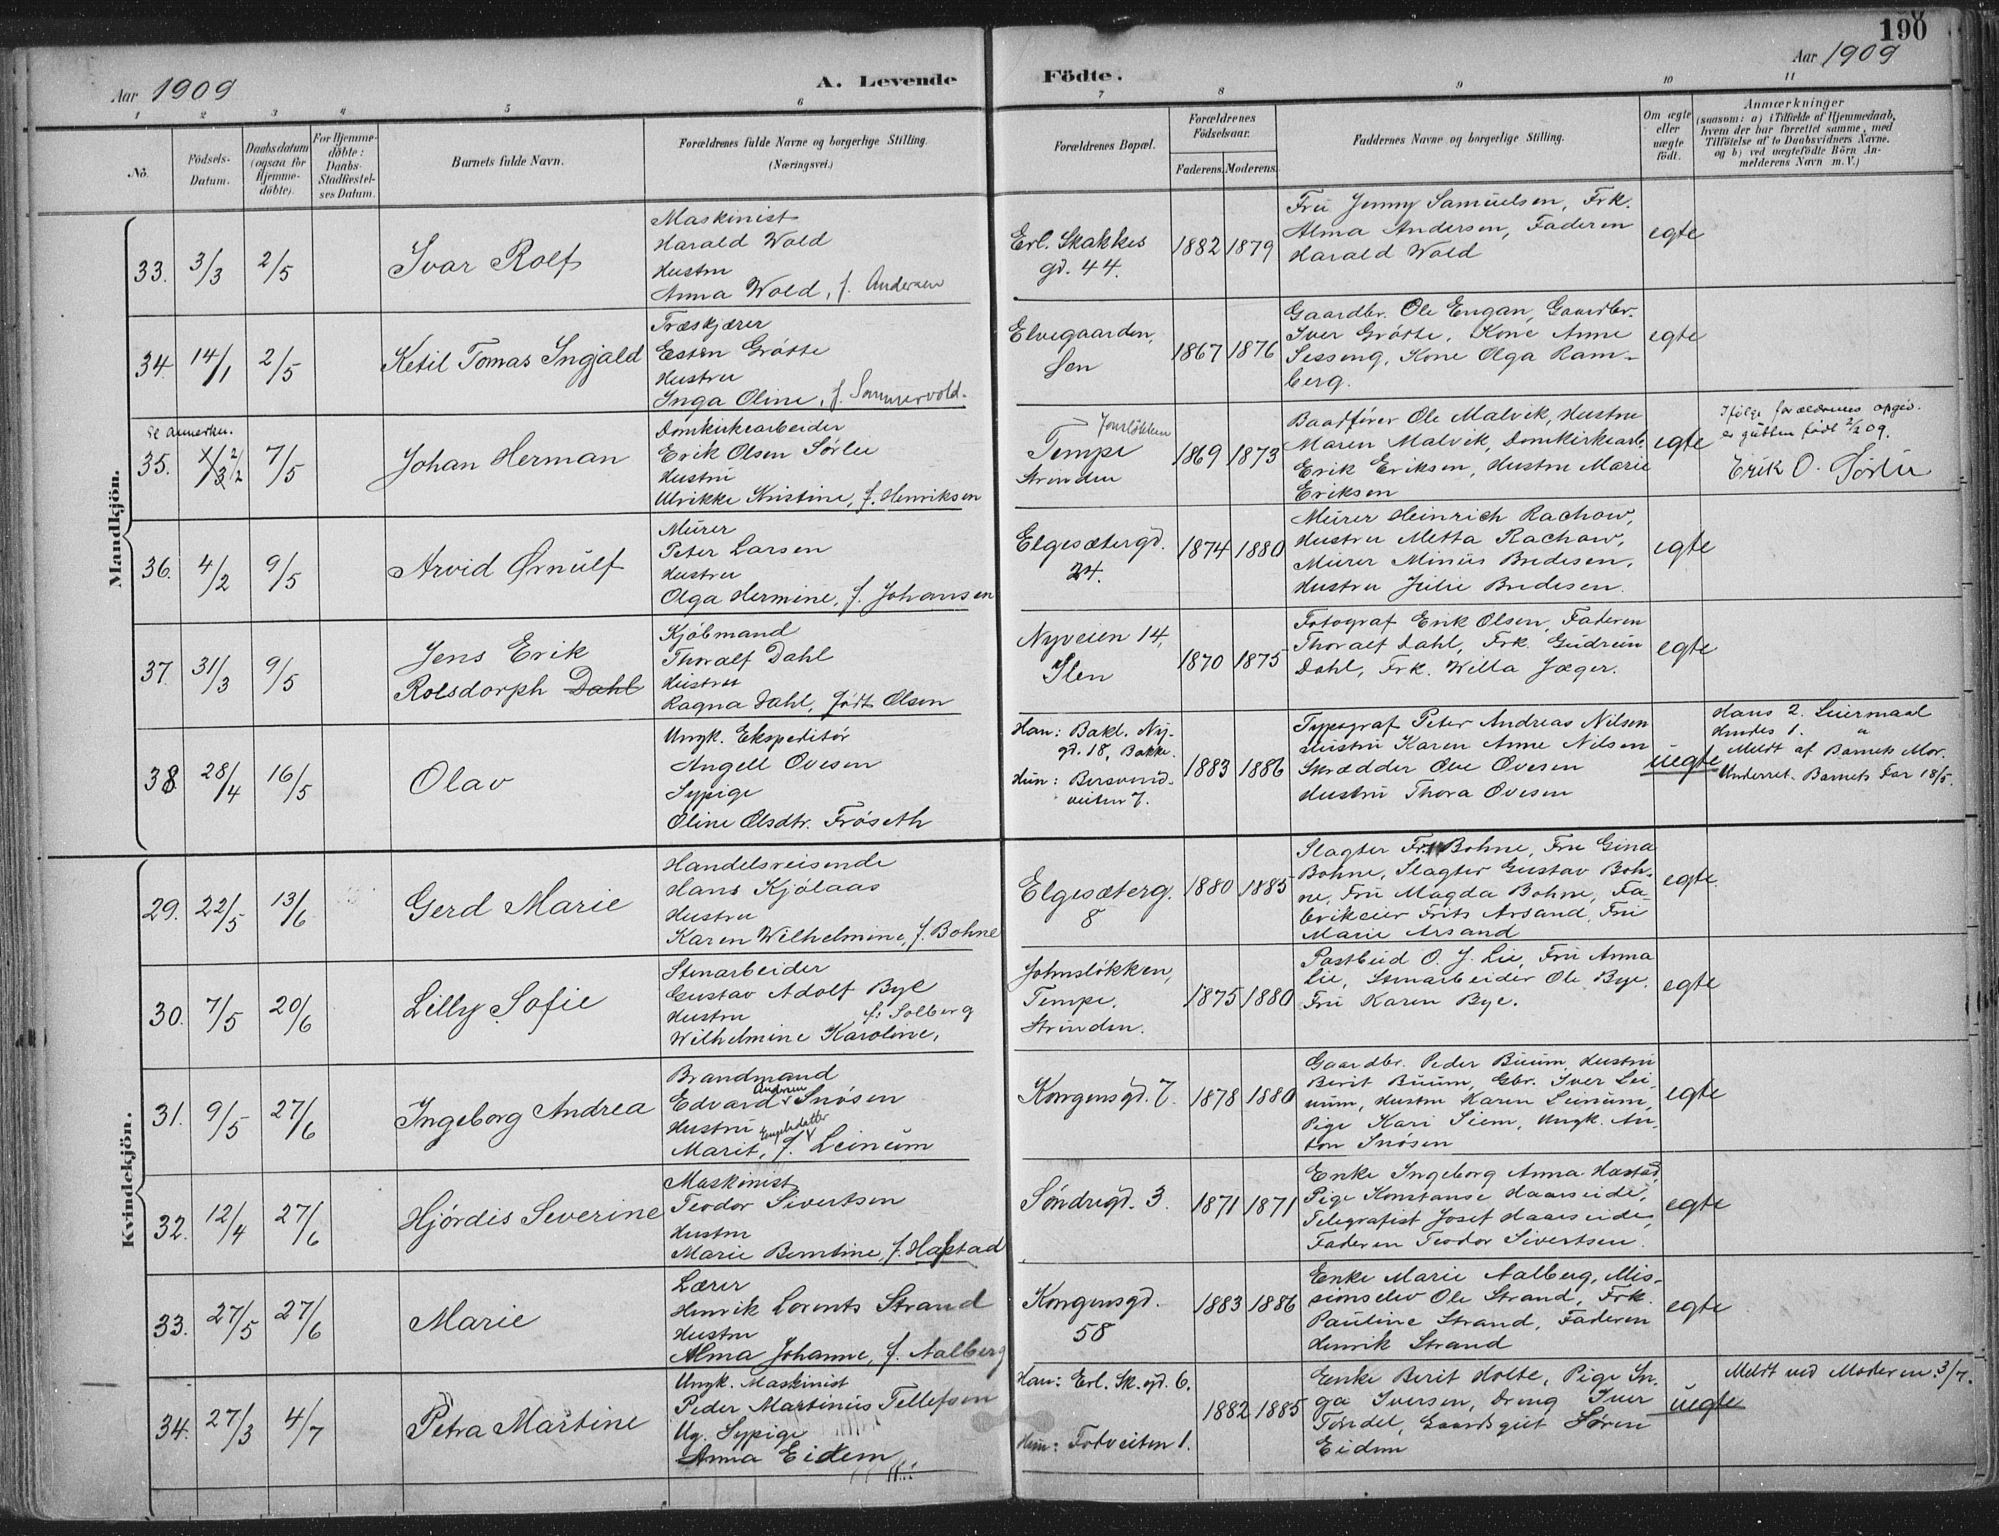 190
Aar 1909
A. Levende
Födte.
Aar 1909
1 2 3 4 5 6 7 8 9 10 11
No.
Födsels-
Datum.
Daabsdatum
(ogsaa for
Hjemme-
döbte).
For Hjemme-
döbte:
Daabs-
Stadfæstel-
ses Datum.
Barnets fulde Navn.
Forældrenes fulde Navne og borgerlige Stilling.
(Næringsvei.)
Forældrenes Bopæl.
Forældrenes
Födselsaar.
Faderens. Moderens.
Faddernes Navne og borgerlige Stilling.
Om ægte
eller
uægte
födt.
Anmærkninger
(saasom: a) i Tilfælde af Hjemmedaab,
hvem der har forrettet samme, med
Tilföielse af to Daabsvidners Navne.
og b) ved uægtefödte Börn An-
melderens Navn m. V.)
Mandkjön.
33. 3/3 2/5 Ivar Rolf
Maskinist
Harald Wold
Hustru
Anna Wold, f. Andersen
Erl. Skakkes
gd. 44.
1882 1879
Fru Jenny Samuelsen, Frk.
Alma Andersen, Faderen
Harald Wold
egte
34. 14/1 2/5 Ketil Tomas Ingjald
Træskjærer
Esten Grötte
Hustru
Inga Oline, f. Sommervold.
Elvegaarden,
Ilen
1867 1876
Gaardbr. Ole Engan, Gaardbr.
Iver Grötte, Kone Anne
Sesseng, Kone Olga Ram-
berg.
egte
Se Anmerkn.
35. 2/2 7/5 Johan Herman
Domkirkearbeider
Erik Olsen Sørlie
Hustru
Ulrikke Kristine, f. Henriksen
Tempe
Strinden
1869 1873
Baadfører Ole Malvik, Hustru
Maren Malvik, Domkirkearb.
Erik Eriksen, Hustru Marie
Eriksen
egte
Ifølge forældrenes opgiv.
er gutten født 2/2 09.
Erik O. Sørlie
36. 4/2 9/5 Arvid Ørnulf
Murer
Peter Larsen
Hustru
Olga Hermine, f. Johansen
Elgesætergd.
24.
1874 1880
Murer Heinrich Rachow,
Hustru Metta Rachow,
Murer Minius Bredesen,
Hustru Julie Bredesen.
egte
37. 31/3 9/5 Jens Erik
Rolsdorph Dahl
Kjöbmand
Thoralf Dahl
Hustru
Ragna Dahl, født Olsen
Nyveien 14,
Ilen
1870 1875
Fotograf Erik Olsen, Faderen
Thoralf Dahl, Frk. Gudrun
Dahl, Frk. Willa Jæger.
egte
38. 28/4 16/5 Olav
Ungk. Ekspeditör
Angell Ovesen
Sypige
Oline Olsdtr. Fröseth
Han: Bakl. Ny-
gd. 18, Bakke.
Hun: Bersvend-
veiten 7.
1883 1886
Typograf Peter Andreas Nilsen
Hustru Karen Anne Nilsen
Skrædder Ole Ovesen
Hustru Thora Ovesen
uegte
Hans 2. Leiermaal
Hendes 1. "
Meldt af Barnets Mor.
Underret. Barnets Far 18/5.
Kvindekjön.
29. 22/5 13/6 Gerd Marie
Handelsreisende
Hans Kjölaas
Hustru
Karen Wilhelmine, f. Bohne
Elgesæterg.
8
1880 1885
Slagter Fr. Bohne, Fru Gina
Bohne, Slagter Gustav Boh-
ne, Fru Magda Bohne, Fa-
brikeier Frits Arsand, Fru
Marie Arsand
egte
30. 7/5 20/6 Lilly Sofie
Stenarbeider
Gustav Adolf Bye
Hustru f. Solberg
Wilhelmine Karoline,
Johnsløkken,
Tempe.
Strinden.
1875 1880
Postbud O. J. Lie, Fru Anna
Lie, Stenarbeider Ole Bye,
Fru Karen Bye.
egte
31. 9/5 27/6 Ingeborg Andrea
Brandmand
Edvard Andersen Snøsen
Hustru
Marit, f. Leinum
Kongensgd. 7
1878 1880
Gaardbr. Peder Buum, Hustru
Berit Buum, Gbr. Iver Lei-
num, Hustru Karen Leinum,
Pige Kari Siem, Ungk. An-
ton Snøsen
egte
32. 12/4 27/6 Hjördis Severine
Maskinist
Teodor Sivertsen
Hustru
Marie Berntine, f. Hastad
Söndregd. 3.
1871 1871
Enke Ingeborg Anna Hastad,
Pige Konstanse Haarseide,
Telegrafist Josef Haarseide,
Faderen Teodor Sivertsen.
egte
33. 27/5 27/6 Marie
Lærer
Henrik Lorents Strand
Hustru
Alma Johanne, f. Aalberg
Kongensgd.
58
1883 1886
Enke Marie Aalberg, Mis-
sionselev Ole Strand, Frk.
Pauline Strand, Faderen
Henrik Strand
egte
34. 27/3 4/7 Petra Martine
Ungk. Maskinist
Peder Martinius Tellefsen
Ug. Sypige
Anna Eidem
Han: Erl. Sk. gd. 6.
Hun: Fotveiten 1.
1882 1885
Enke Berit Holte, Pige In-
ga Iversen, Dreng Iver
Gaardsgut Sören
Eidem
uegte
Meldt ved Moderen 3/7.